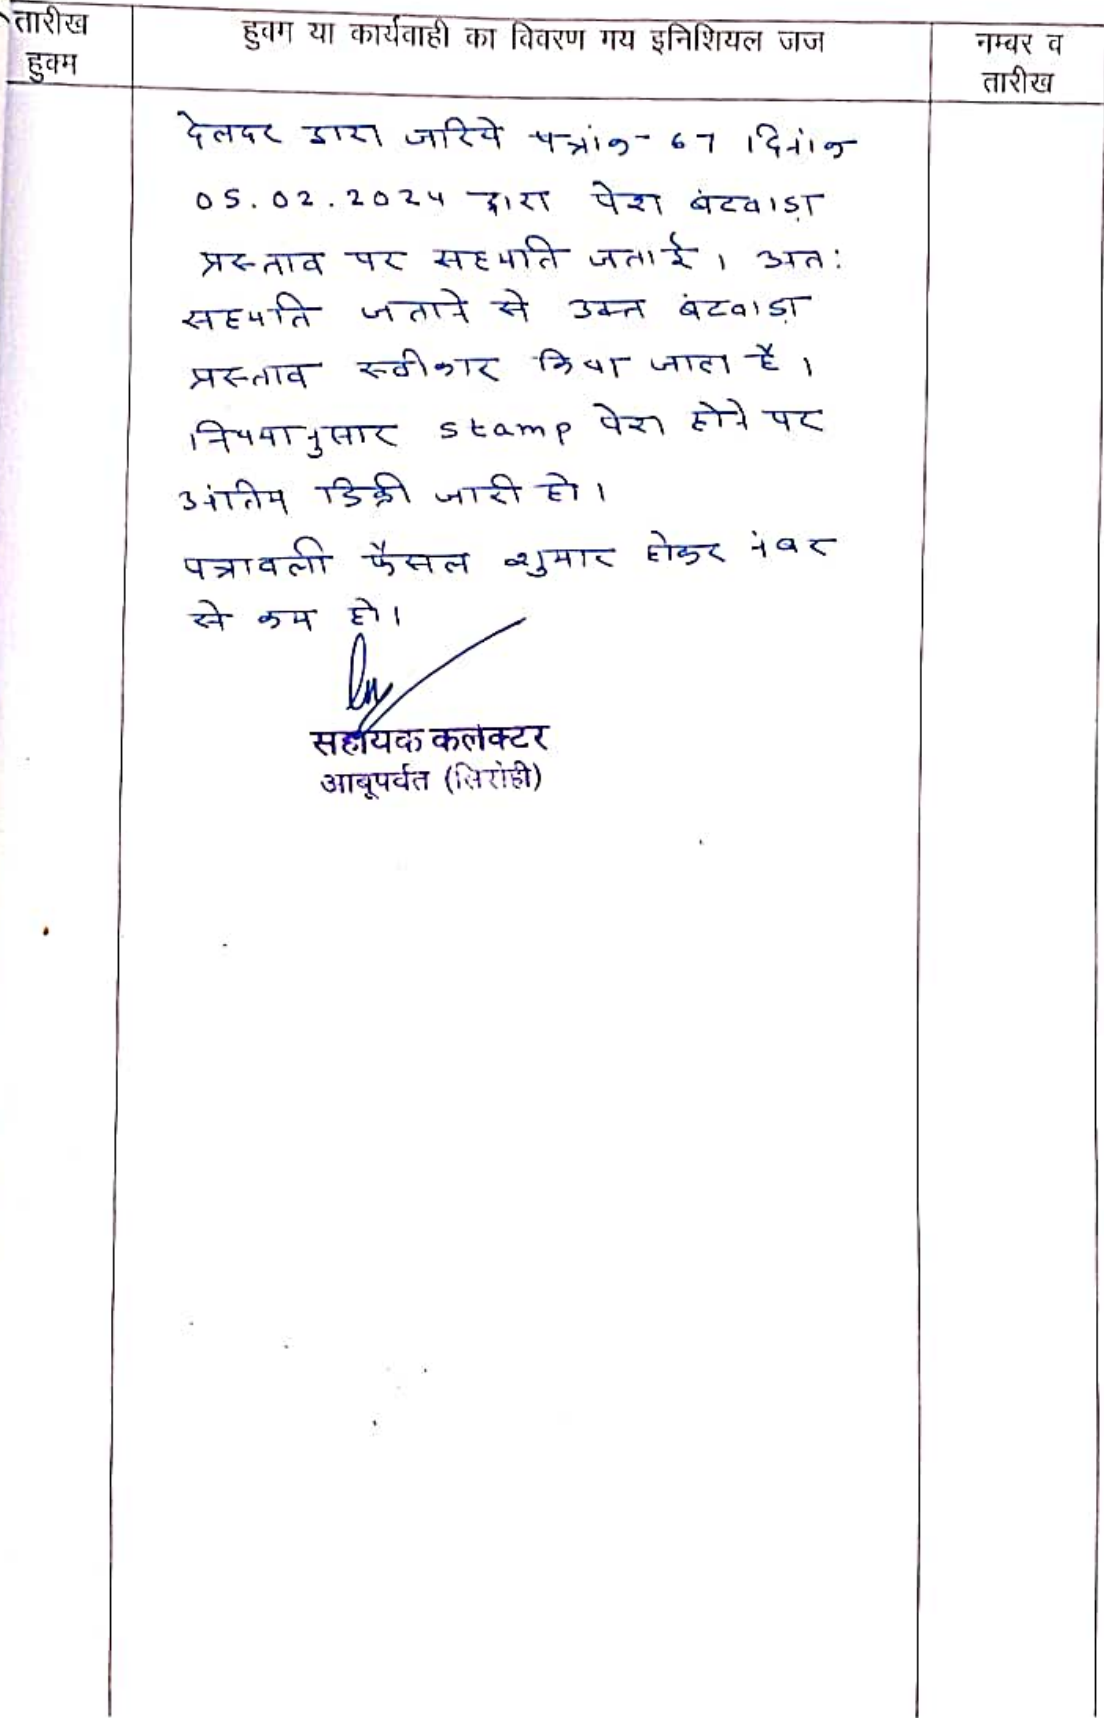 तारीख
हुक्म
हुक्म या कार्यवाही का विवरण मय इनिशियल जज
नम्बर व
तारीख
देलदर द्वारा जरिये पत्रांक - 67 दिनांक
05.02.2024 द्वारा पेश बंटवाड़ा
प्रस्ताव पर सहमति जताई। अतः
सहमति जताने से उक्त बंटवाड़ा
प्रस्ताव स्वीकार किया जाता है।
नियमानुसार stamp पेश होने पर
अंतिम डिक्री जारी हो।
पत्रावली फैसल शुमार होकर नंबर
से कम हो।
सहायक कलेक्टर
आबूपर्वत (सिरोही)